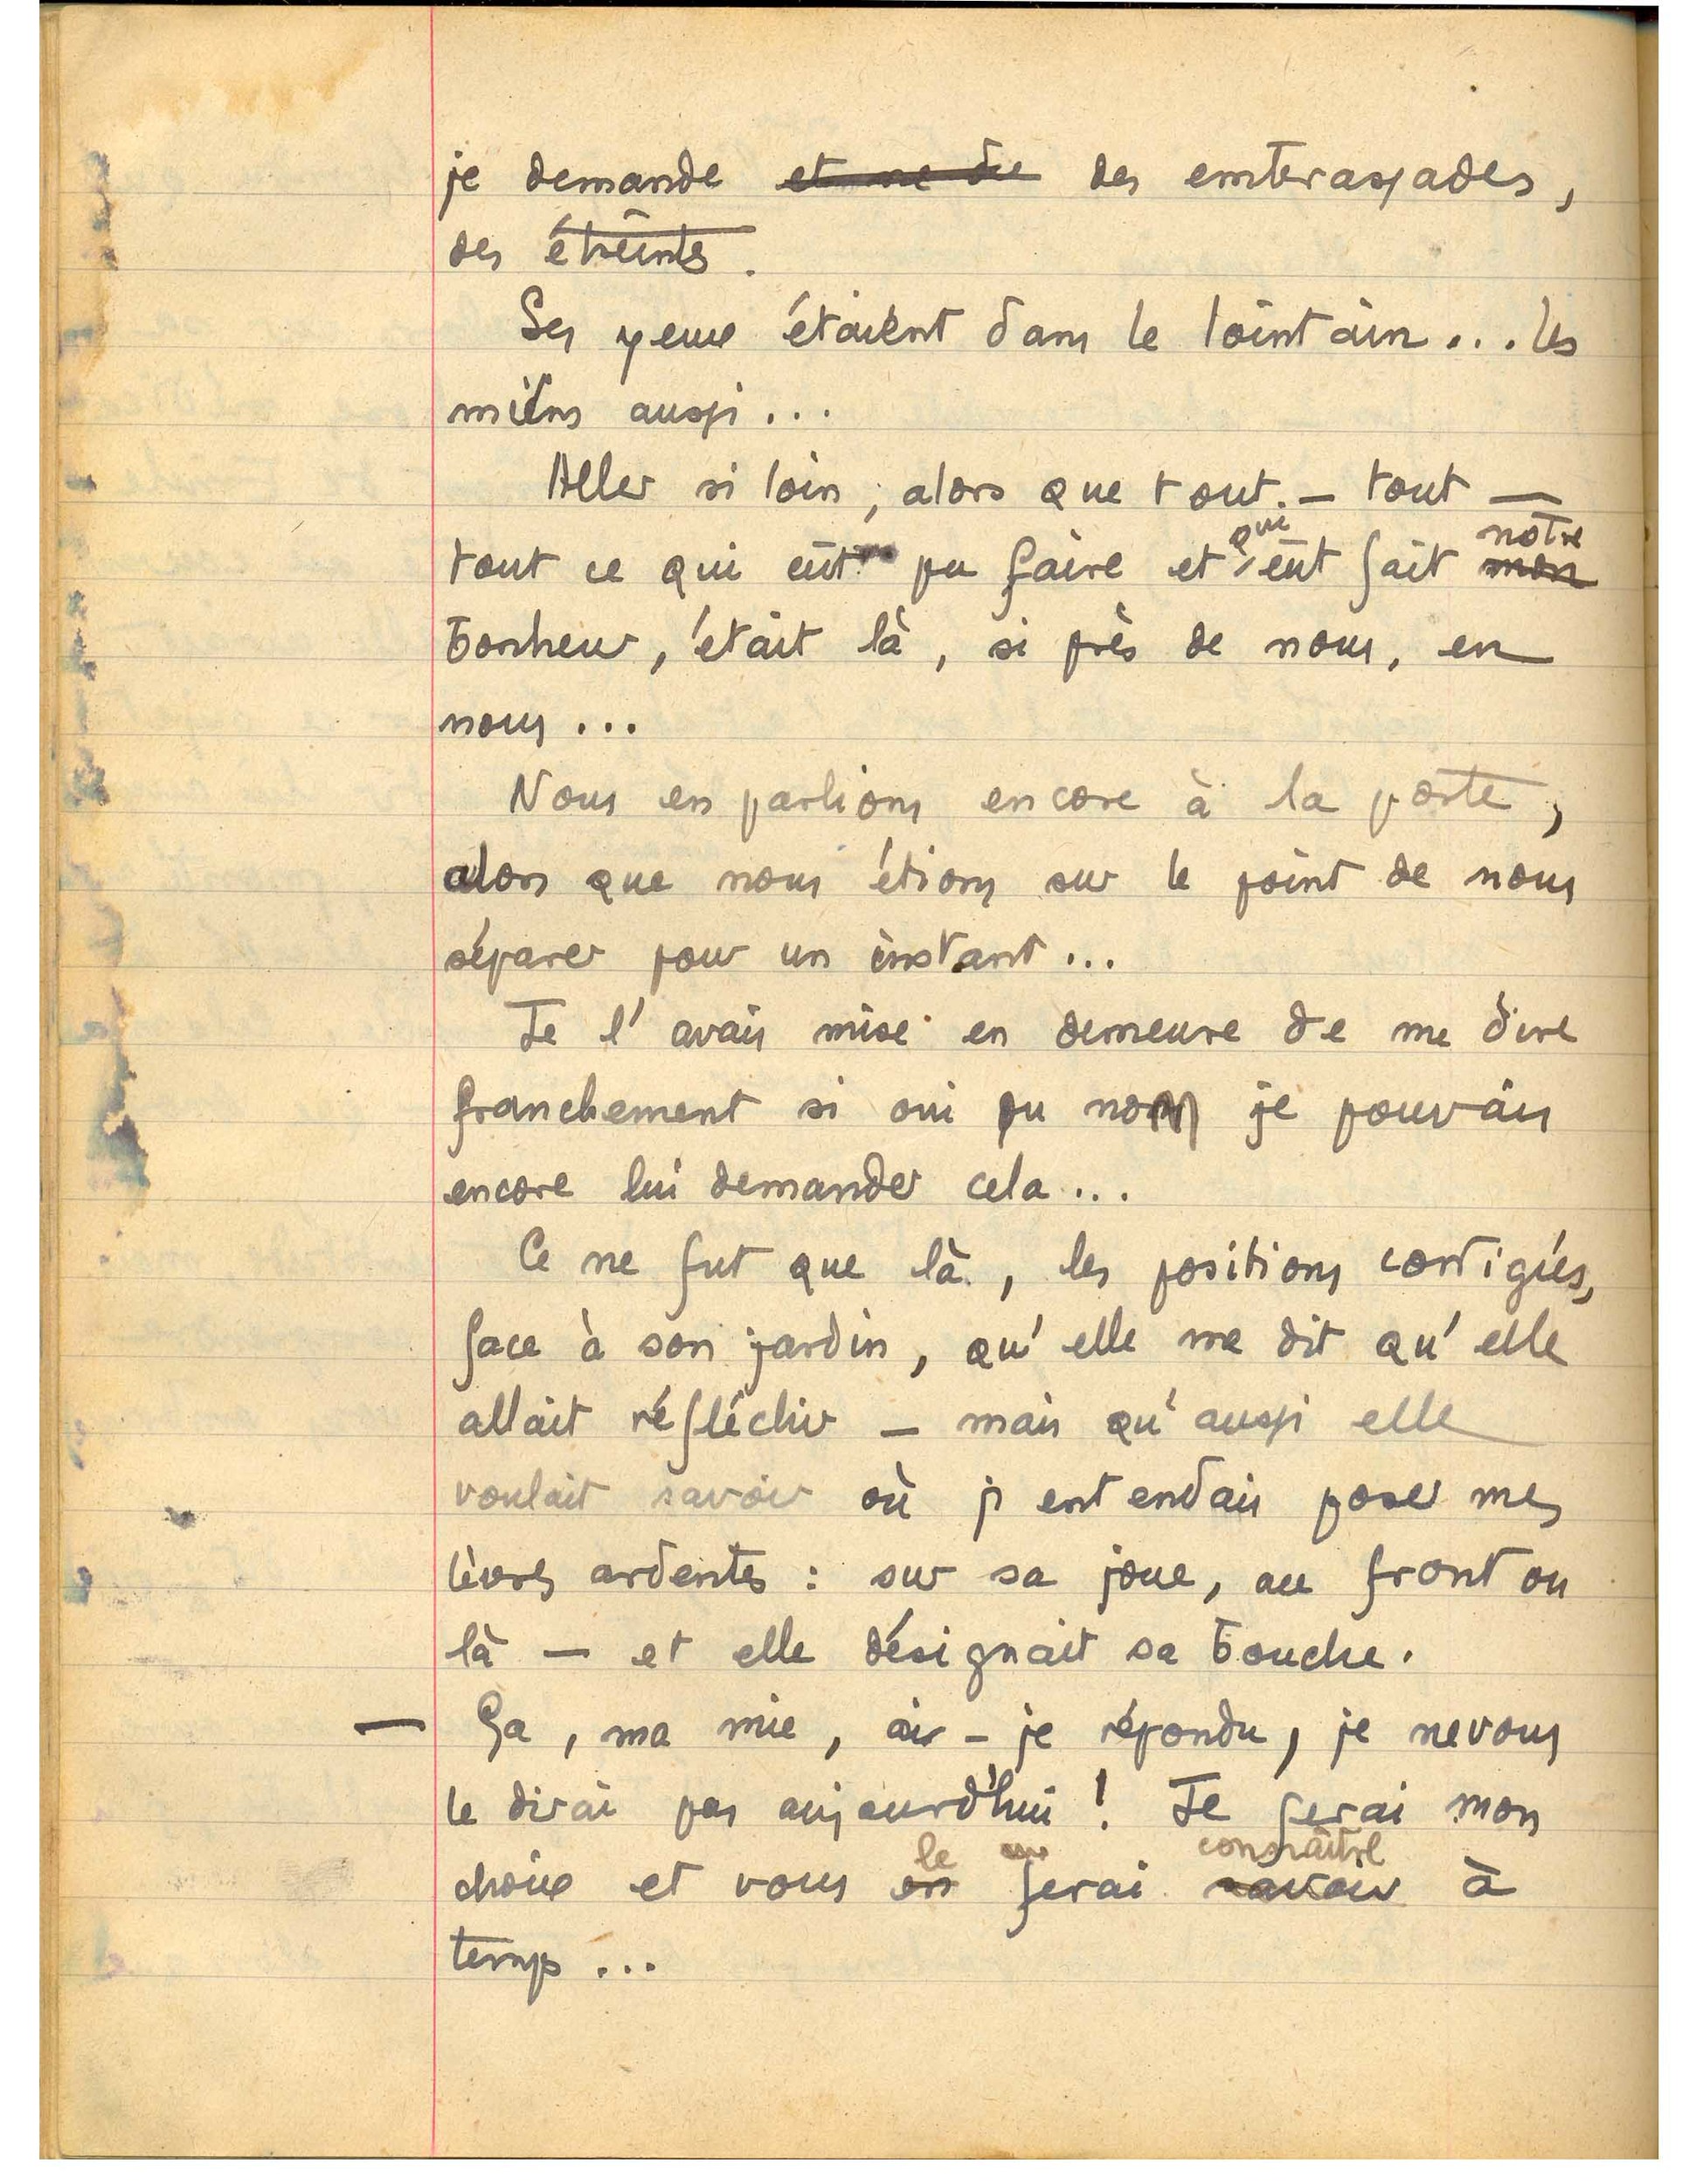 je demande ~~et ne du~~ des embrassades,
des étreintes.
Ses yeux étaient dans le lointain... les
miens aussi...
Aller si loin, alors que tout. — tout —
tout ce qui eût pu faire et qui eût fait ~~mon~~ notre
bonheur, était là, si près de nous, en
nous...
Nous en parlions encore à la porte,
alors que nous étions sur le point de nous
séparer pour un instant...
Je l'avais mise en demeure de me dire
franchement si oui ou non je pouvais
encore lui demander cela...
Ce ne fut que là, les positions corrigées,
face à son jardin, qu'elle me dit qu'elle
allait réfléchir — mais qu'aussi elle
voulait savoir où j'entendais poser mes
lèvres ardentes : sur sa joue, au front ou
là — et elle désignait sa bouche.
— Ça, ma mie, ai-je répondu, je ne vous
le dirai pas aujourd'hui ! Je ferai mon
choix et vous ~~en~~ le ferai ~~savoir~~ connaître à
temps...